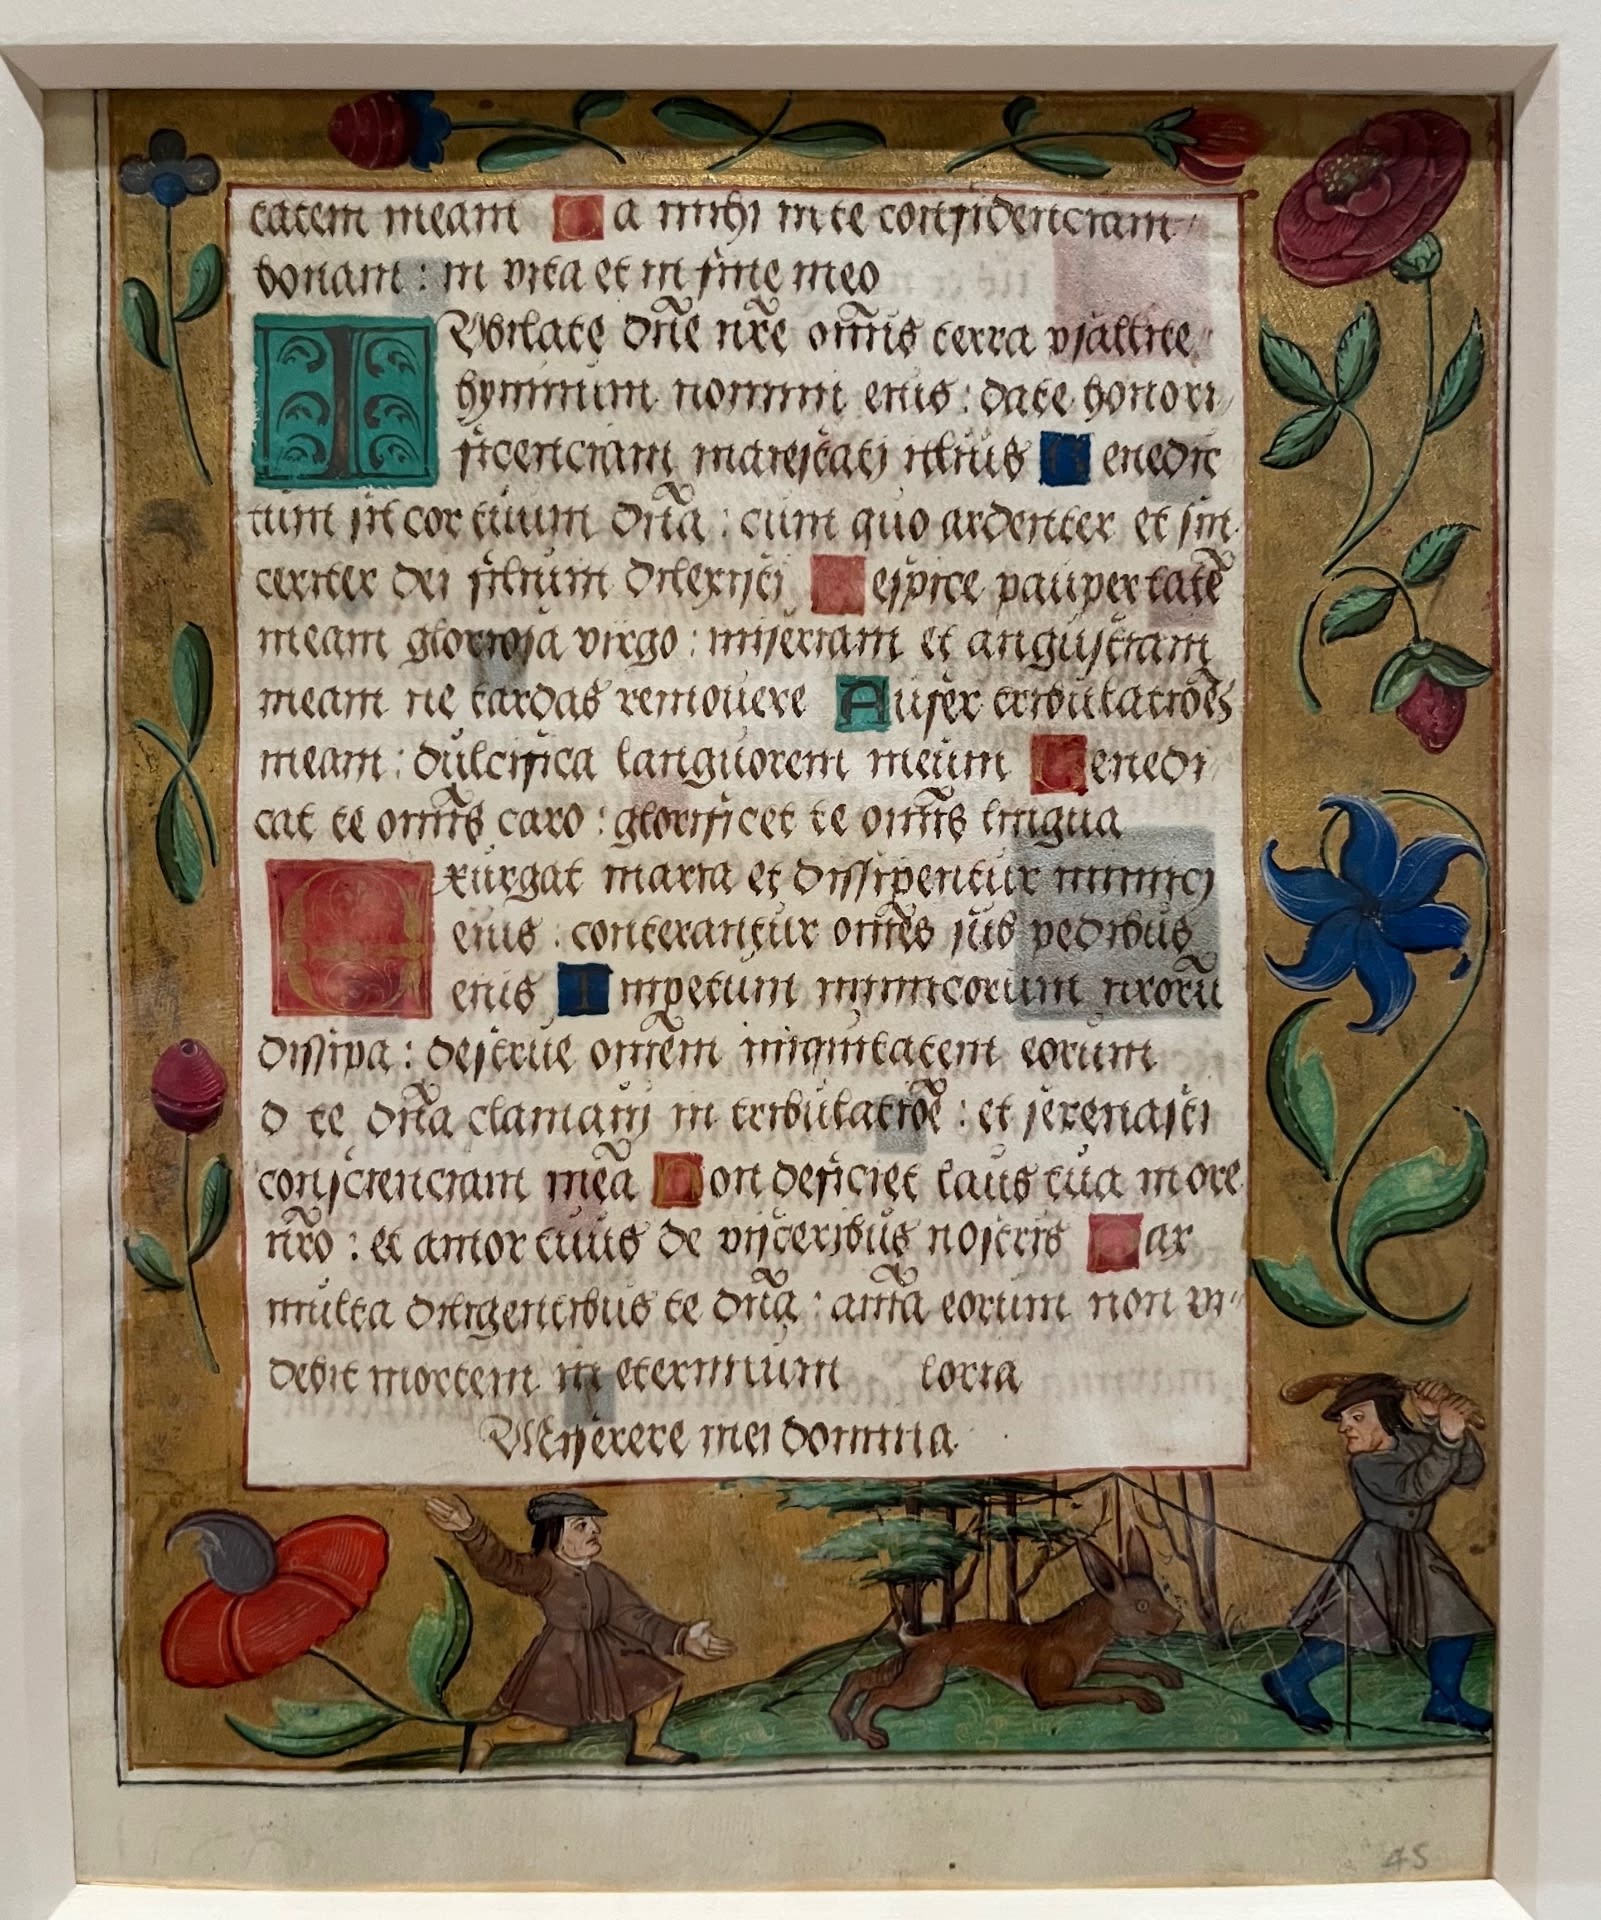 tatem meam Da mihi in te confidenciam
bonam : in vita et in fine meo
IVbilate dn̄e nr̄e om̄is terra psallite
hymnum nomini eius : date honori
ficenciam maiestati illius Benedic
tum sit cor tuum dn̄a : cum quo ardenter et sin
ceriter dei filium dilexisti Respice paupertatē
meam gloriosa virgo : miseriam et angustiam
meam ne tardas remouere Aufer tribulatiōes
meam : dulcifica languorem meum Benedi
cat te om̄is caro : glorificet te om̄is lingua
Exurgat maria et dissipentur inimici
eius : conterantur om̄es sub pedibus
eius Impetum inimicorum nr̄orū
dissipa : destrue om̄em iniquitatem eorum
d te dn̄a clamaui in tribulatiōe : et serenasti
conscienciam meā Non deficiet laus tua in ore
nr̄o : et amor tuus de visceribus nostris Pax
multa diligentibus te dn̄a : aīa eorum non vi
debit mortem in eternum loria
Miserere mei domina
45